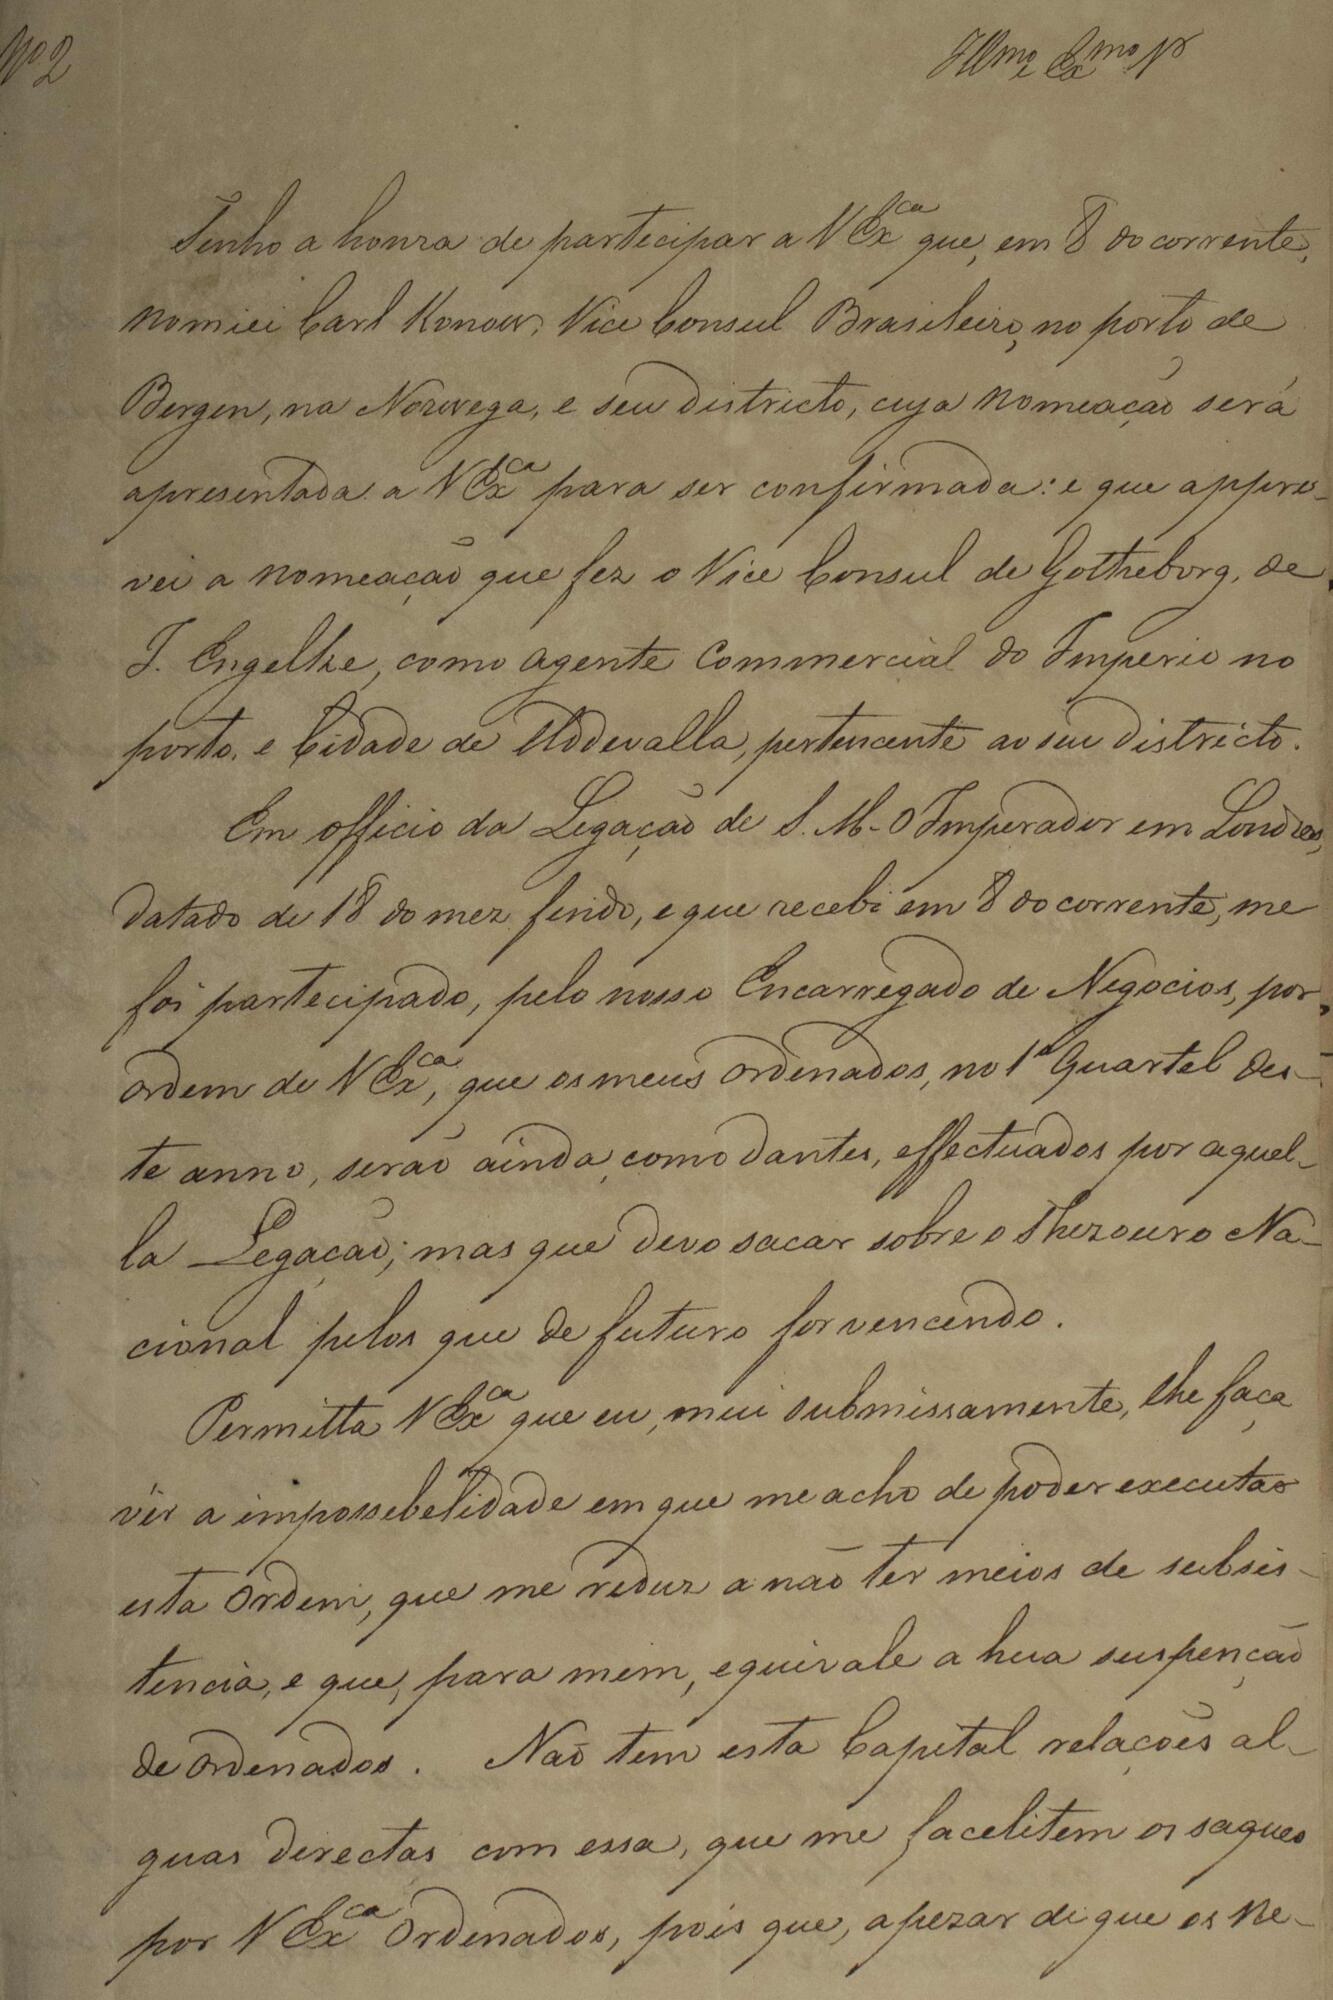 Nº 2
Illmo e Exmo Sr
Tenho a honra de partecipar a V Exca que, em 8 do corrente,
nomiei Carl Konow, Vice Consul Brasileiro, no porto de
Bergen, na Norwega, e seu districto, cuja nomeação será
apresentada a V Exca para ser confirmada: e que appro-
vei a nomeação que fez o Vice Consul de Gotheborg, de
J. Engelke, como agente Commercial do Imperio no
porto, e Cidade de Uddevalla, pertencente ao seu districto.
Em officio da Legação de S. M. O Imperador em Londres,
datado de 18 do mez findo, e que recebi em 8 do corrente, me
foi partecipado, pelo nosso Encarregado de Negocios, por
ordem de V Exca, que os meus Ordenados, no 1º Quartel des-
te anno, serão ainda, como dantes, effectuados por aquel-
la Legação; mas que devo sacar sobre o Thezouro Na-
cional pelos que de futuro for vencendo.
Permitta V Exca que eu, mui submissamente, lhe faça
vêr a impossebelidade em que me acho de poder executar
esta Ordem, que me reduz a não ter meios de subsis-
tencia, e que, para mim, equivale a hua suspenção
de Ordenados. Não tem esta Capital relações al-
guas directas com essa, que me facelitem os saques
por V Exca Ordenados, pois que, apezar de que os Ne-